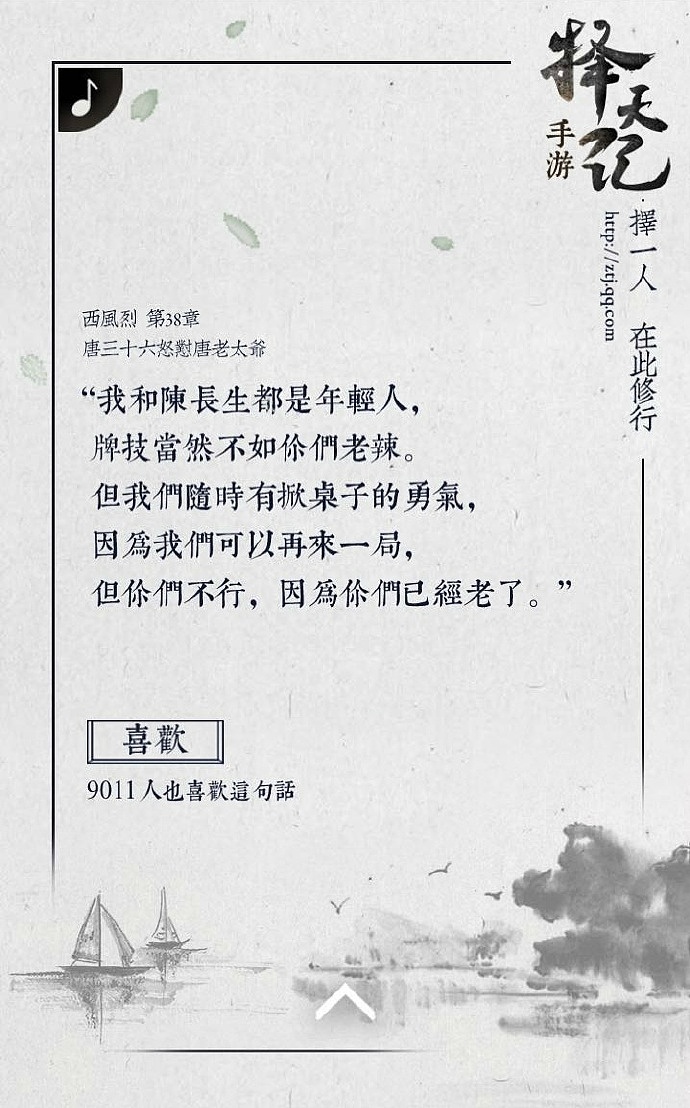 择天记
手游
擇一人 在此修行
http://ztj.qq.com
西風烈 第38章
唐三十六怒懟唐老太爺
“我和陳長生都是年輕人，
牌技當然不如你們老辣。
但我們隨時有掀桌子的勇氣，
因爲我們可以再來一局，
但你們不行，因爲你們已經老了。”
喜歡
9011人也喜歡這句話